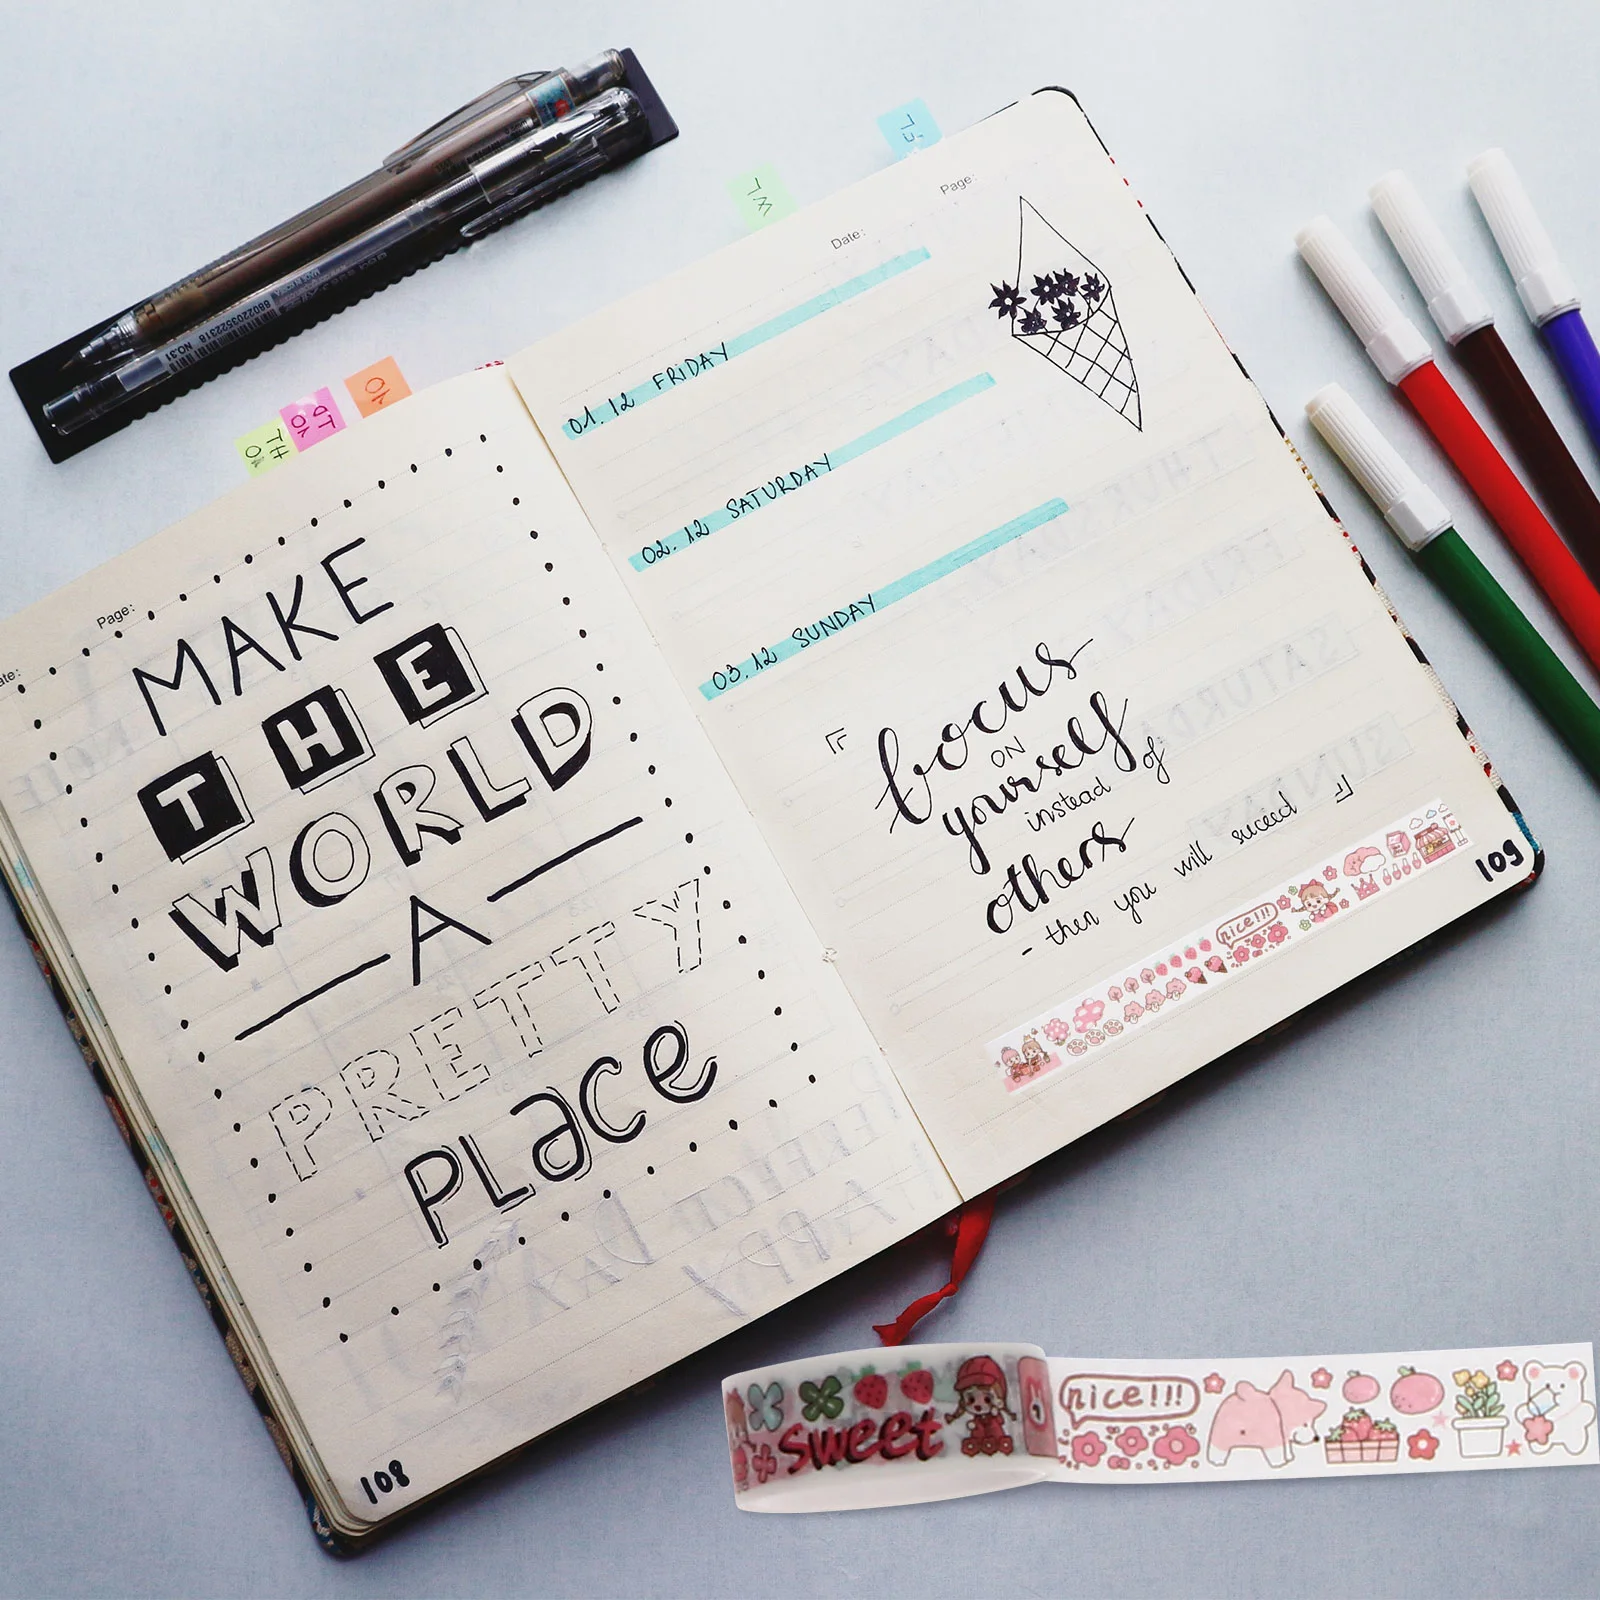 Page:
MAKE
THE
WORLD
A
PRETTY
PLace
108
Date:
Page:
01.12 FRIDAY
02.12 SATURDAY
03.12 SUNDAY
focus
ON
yourself
instead of
others
- then you will suceed
nice!!!
109
8802203522318 NO.31
sweet
nice!!!